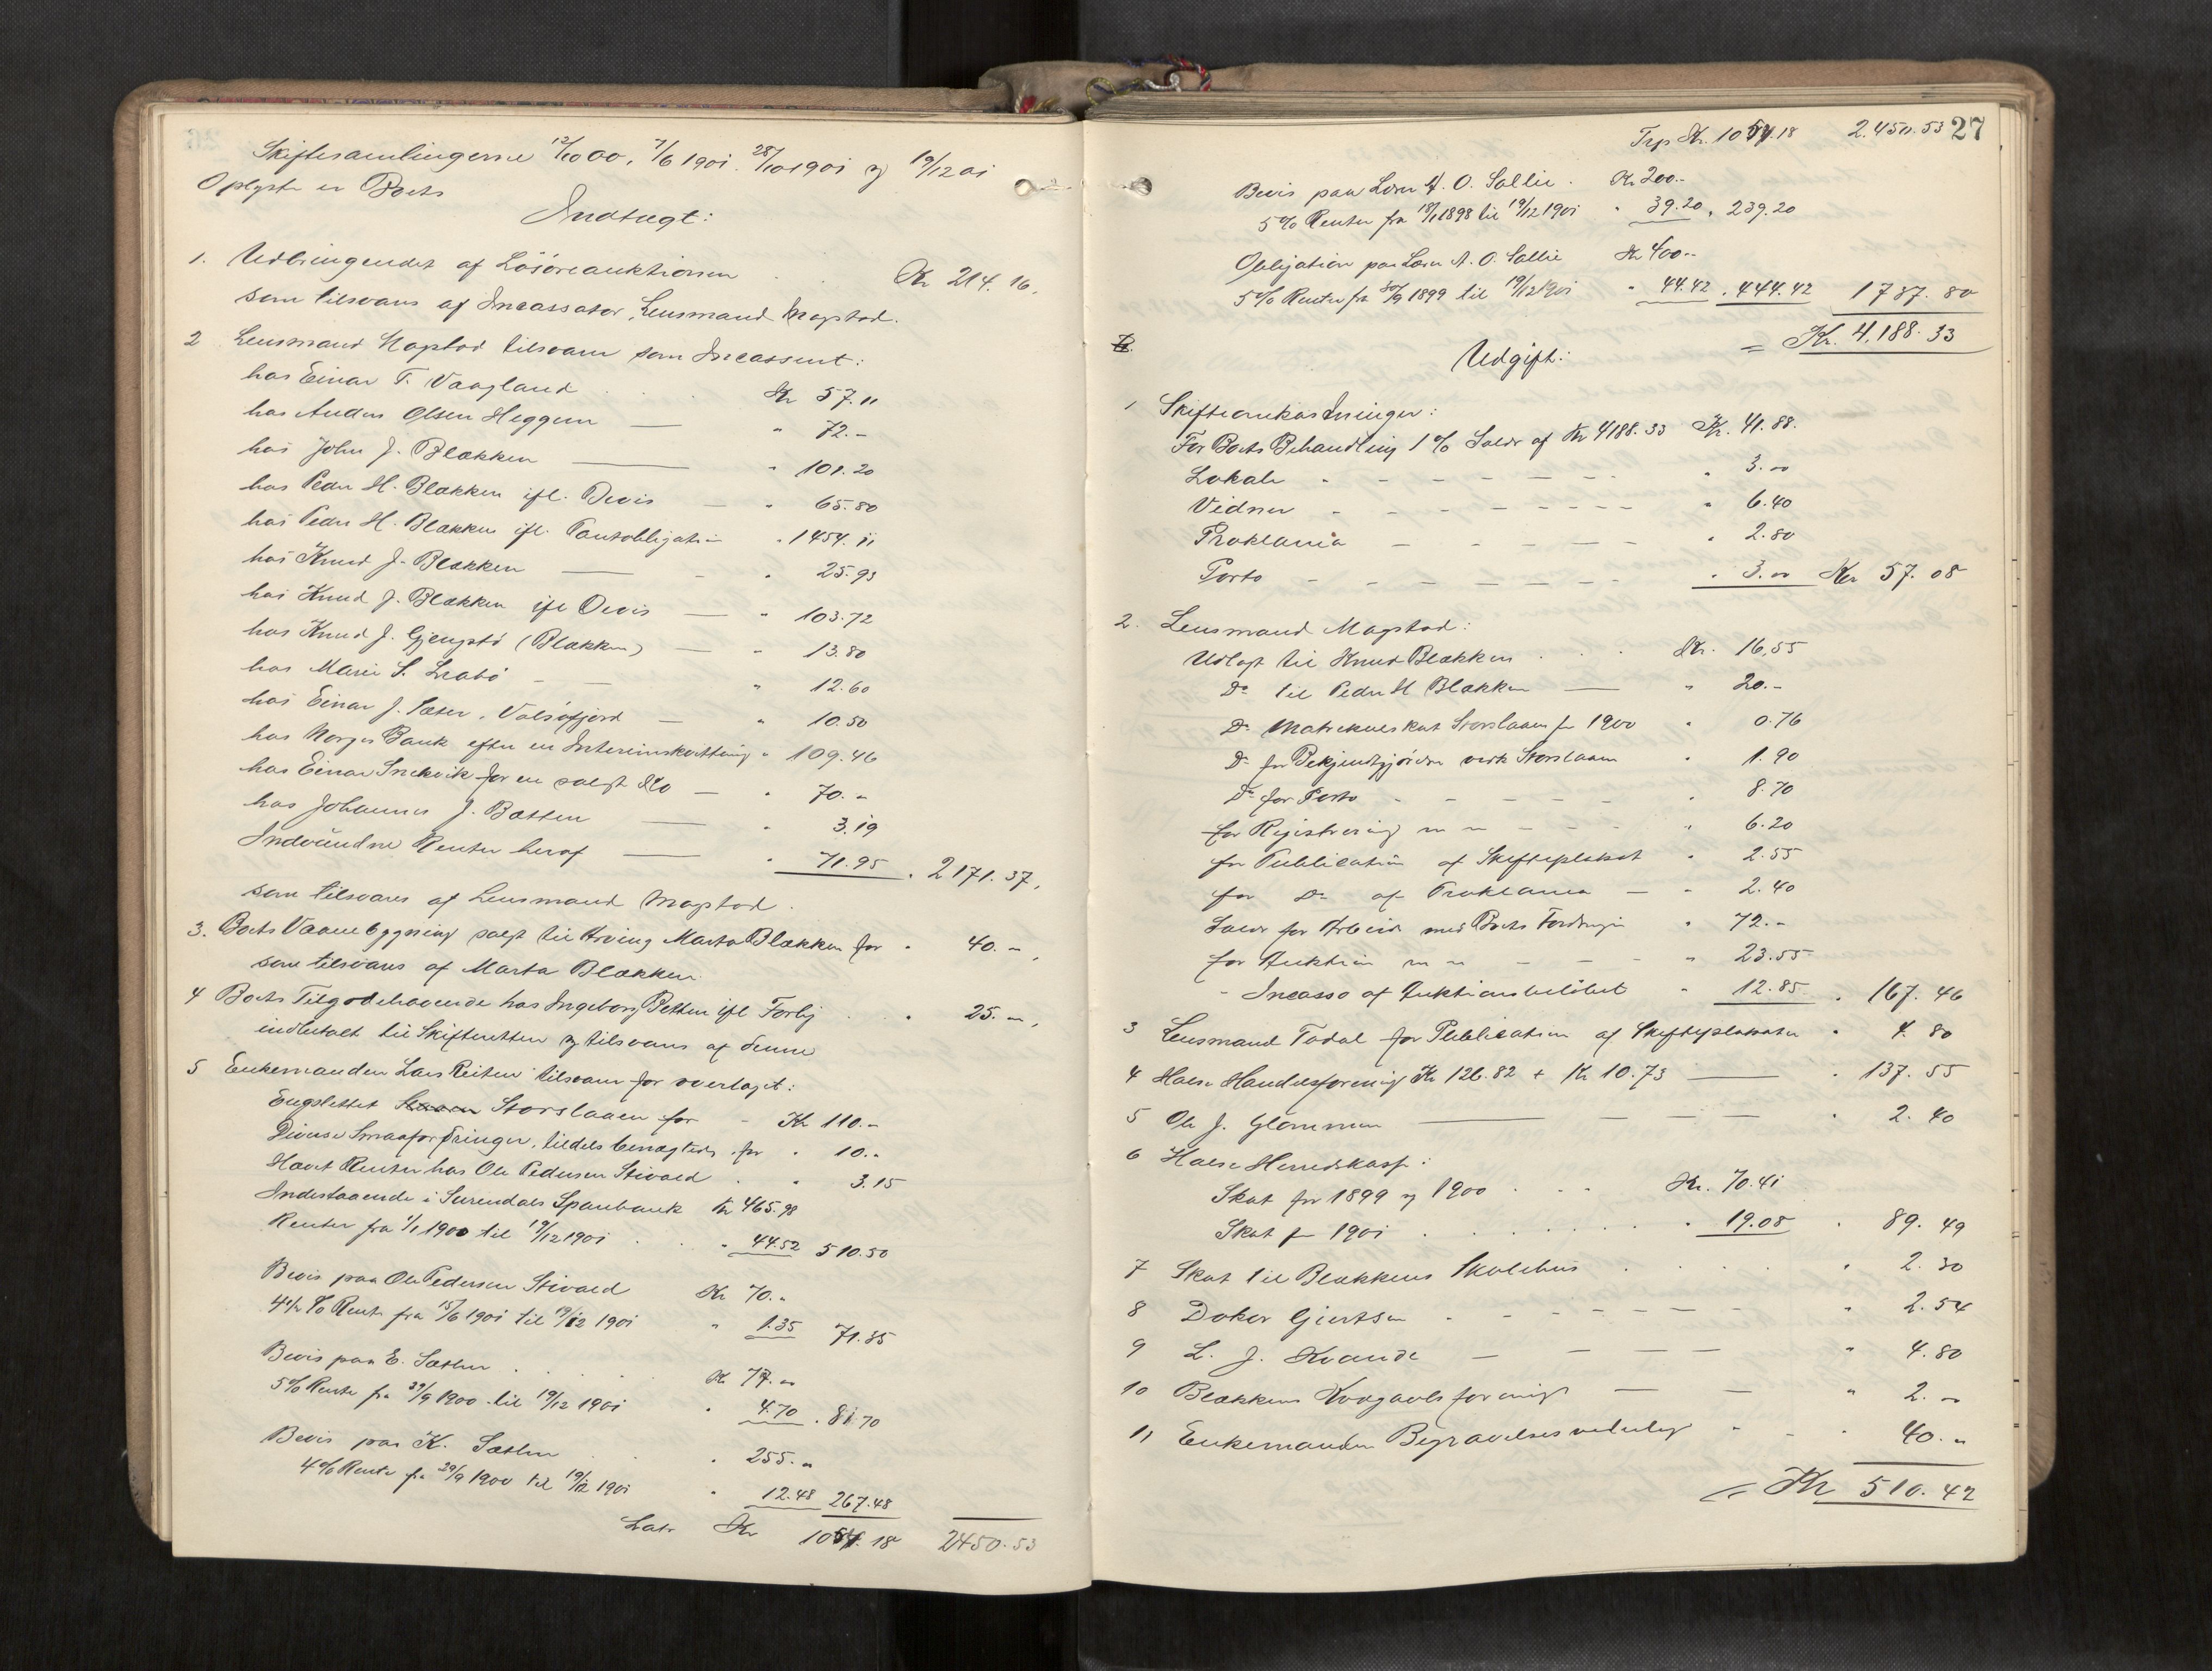 Skiftesamlingerne 12/10 00, 7/6 1901. 28/10 1901 og 19/12 01
Oplyste er Boets
Indtægt:
1. Udbringendet af Lösöreauktionen Kr 214.16,
som tilsvares af Incassator, Lensmand Magstad.
2 Lensmand Magstad tilsvarer som Incasseret:
hos Einar T. Vaagland Kr 57.11
hos Anders Olsen Heggem — " 72.-
hos John J. Blekken — " 101.20
hos Peder H. Blekken ifl. Bevis — " 65.80
hos Peder H. Blekken ifl. Pantobligation " 1454.11
hos Knud J. Blekken — - " 25.93
hos Knud J. Blekken ifl Bevis — " 103.72
hos Knud J. Gjengstö (Blekken) — " 13.80
hos Marie S. Leabö - — " 12.60
hos Einar J. Sæter, Valsöfjord — " 10.50
hos Norges Bank efter en Interimskvittering " 109.46
hos Einar Snekvik for en solgt Ko — " 70.-
hos Johannes J. Botten — " 3.19
Indvundne Renter heraf — " 71.95 . 2171.37,
som tilsvares af Lensmand Magstad.
3. Boets Vaanebygning solgt til Arving Marta Blekken for " 40.-,
som tilsvares af Marta Blekken.
4 Boets Tilgodehavende hos Ingeborg Botten ifl Forlig . " 25.-,
indbetalt til Skifteretten og tilsvares af denne
5 Enkemanden Lars Reiten tilsvarer for overtaget:
Engslettet Storslaaen for - Kr 110.-
Diverse Smaafordringer, tildels benegtede, for " 10.-
Hævet Renter hos Ole Pedersen Stivold . " 3.15
Indestaaende i Surendals Sparebank Kr 465.98
Renter fra 1/1 1900 til 19/12 1901 . . " 44.52 510.50
Bevis paa Ole Pedersen Stivold Kr 70.-
4½ % Rente fra 15/6 1901 til 19/12 1901 " 1.35 71.35
Bevis paa E. Sæther . . . Kr 77.-
5 % Rente fra 29/9 1900 til 19/12 1901 " 4.70 . 81.70
Bevis paa K. Sæther . . " 255.-
4 % Rente fra 29/9 1900 til 19/12 1901 " 12.48 267.48
Latr Kr 1054.18 2450.53
27
Trp Kr. 1054.18 2.450.53
Bevis paa Lærer A. O. Sollie . Kr 200.-
5 % Renter fra 18/1 1898 til 19/12 1901 " 39.20, 239.20
Obligation paa Lærer A. O. Sollie Kr 400.-
5 % Renter fra 30/9 1899 til 19/12 1901 " 44.42 . 444.42 1737.80
= Kr. 4,188.33
Udgift:
1 Skifteomkostninger:
For Boets Behandling 1 % Salær af Kr 4188.33 Kr. 41.88.
Lokale - - - - - - - " 3.00
Vidner - - - - - - - - " 6.40
Proklama — - - - — - " 2.80
Porto - - - - - - - - " 3.00 Kr 57.08
2. Lensmand Magstad:
Udlagt til Knud Blekken . . . Kr. 16,55
Do til Peder H Blekken — " 20.-
Do Matrikulskat Storslaaen for 1900 " 0.76
Do for Bekjendtgjörelse vedk Storslaaen " 1.90
Do for Porto - - - - - - " 8.70
for Registrering m m - - - - " 6.20
for Publication af Skifteplakat " 2.55
for Do af Proklama — - " 2.40
Salær for Arbeide med Boets Fordringer " 72.-
for Auktion m m - - - - " 23.55
- Incasso af Auktionsbelöbet " 12.85 . 167.46
3 Lensmand Todal for Publication af Skifteplakater " 4.80
4 Halse Handelsforening Kr 126.82 + Kr 10.73 — " 137.55
5 Ole J. Glömmen — — — — " 2.40
6 Halse Herredskasse:
Skat for 1899 og 1900 . . . Kr. 70.41
Skat for 1901 . . . . . . " 19.08 " 89.49
7 Skat til Blekkens Skolehus . . . . " 2.30
8 Doktor Giertsen - - - - - - — " 2.54
9 L. J. Kvande — — — — " 4.80
10 Blekkens forening — — " 2.-
11 Enkemanden Begravelsesvederlag - - . 40.-
= Kr 510.42